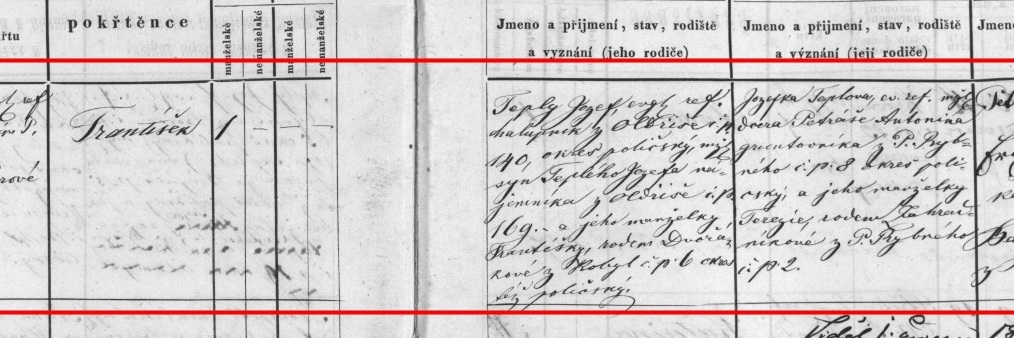 pokřtěnce
řtu
manželské
nemanželské
manželské
nemanželské
Jmeno a přijmení, stav, rodiště
a vyznání (jeho rodiče)
Jmeno a přijmení, stav, rodiště
a význání (její rodiče)
Jmeno
ref
František 1 – – –
rové
Teplý Jozef, evgl. ref.
chalupník z Oldřiše č. p.
140, okres poličský,
syn Teplého Jozefa ná-
jemníka z Oldřiše č. p.
169. a jeho manželky
Františky, rozené Dvořá-
kové z Kobyl č. p. 6 okres
též poličský.
Jozefka Teplova, ev. ref.
dcera Petraše Antonína
gruntovníka z P. Ryb-
ného č. p. 8 okres poli-
čský, a jeho manželky
Terezie, rodem Zahrad-
níkové z P. Rybného
č. p. 2.